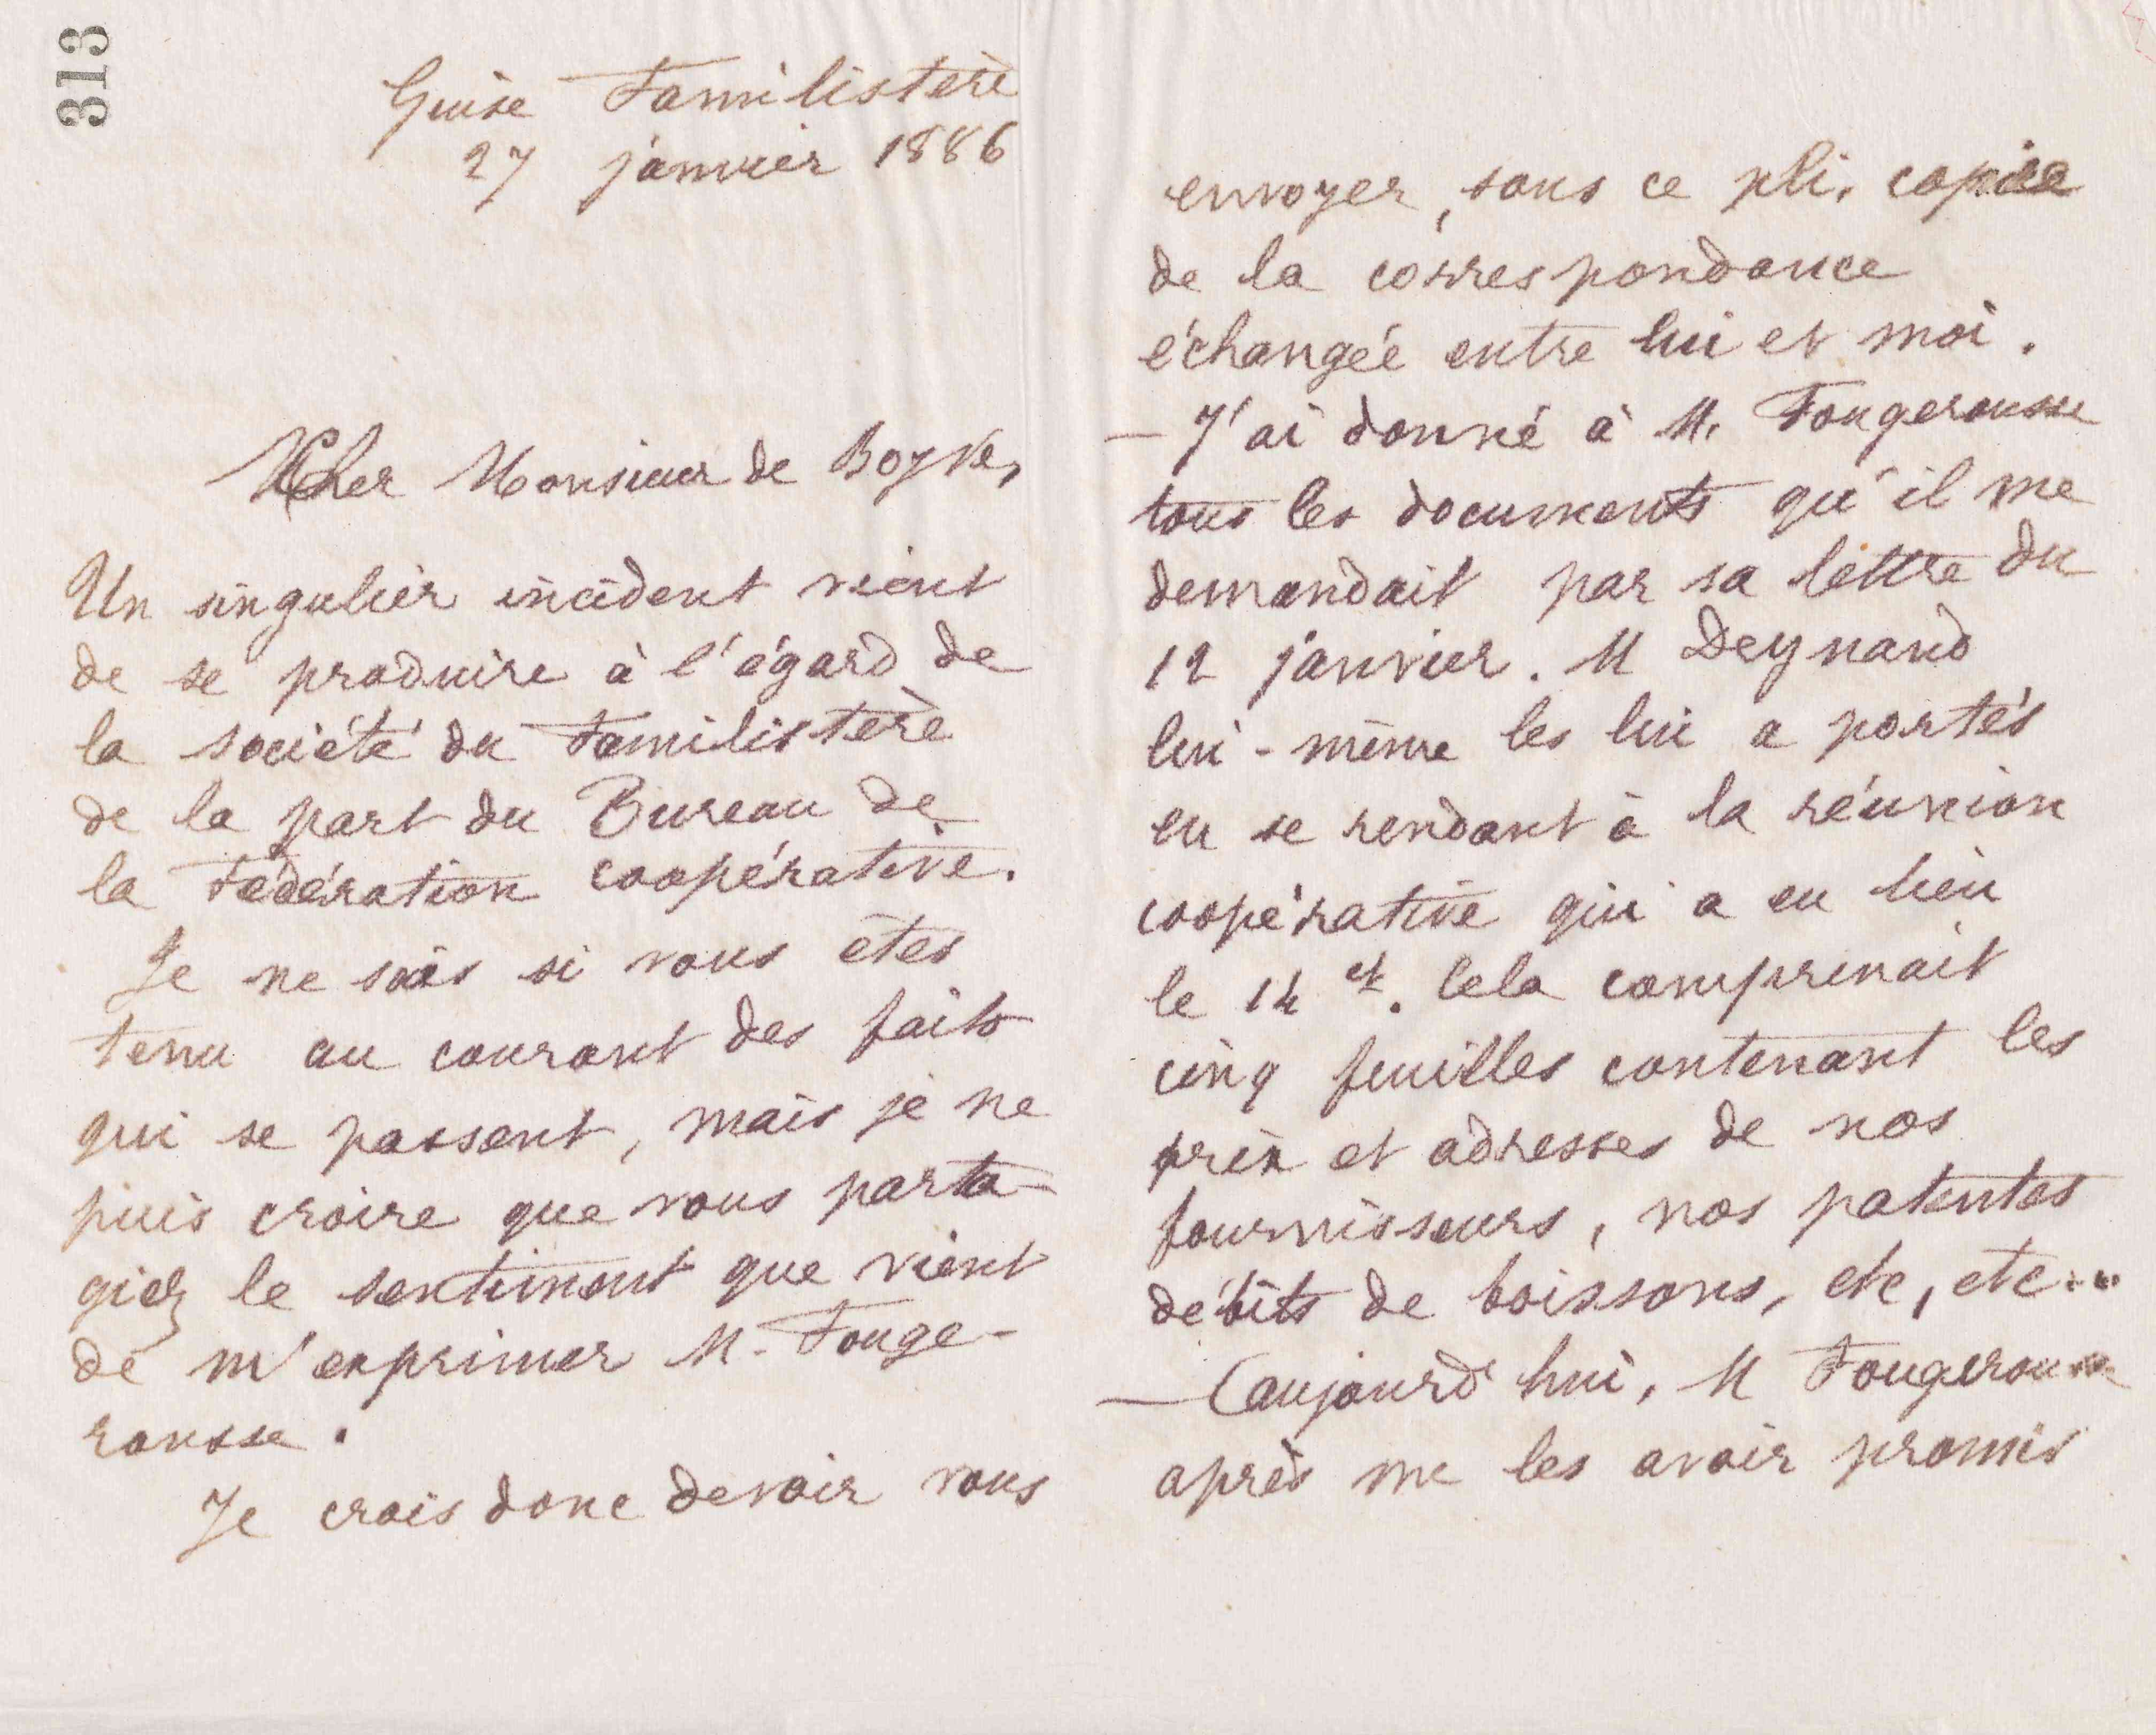 313
Guise Familistère
27 janvier 1886
Cher Monsieur de Boyve,
Un singulier incident vient
de se produire à l'égard de
la société du Familistère
de la part du Bureau de
la Fédération coopérative.
Je ne sais si vous êtes
tenu au courant des faits
qui se passent, mais je ne
puis croire que vous parta-
giez le sentiment que vient
de m'exprimer M. Fouge-
rousse.
Je crois donc devoir vous
envoyer, sous ce pli, copie
de la correspondance
échangée entre lui et moi.
— J'ai donné à M. Fougerousse
tous les documents qu'il me
demandait par sa lettre du
12 janvier. M Deynaud
lui-même les lui a portés
en se rendant à la réunion
coopérative qui a eu lieu
le 14 ct. Cela comprenait
cinq feuilles contenant les
prix et adresses de nos
fournisseurs, nos patentes
débits de boissons, etc, etc...
— (aujourd'hui, M Fougerousse
après me les avoir promis